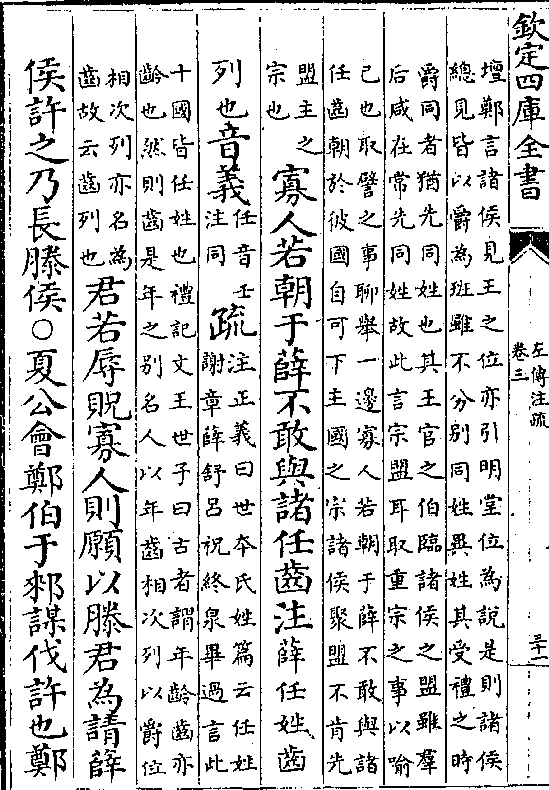 欽定四庫全書
左傳注疏
卷三
三十一
壇鄭言諸侯見王之位亦引明堂位為說是則諸侯
總見皆以爵為班雖不分別同姓異姓其受禮之時
爵同者猶先同姓也其王官之伯臨諸侯之盟雖羣
后咸在常先同姓故此言宗盟耳取重宗之事以喻
己也取譬之事聊舉一邊寡人若朝于薛不敢與諸
任齒朝於彼國自可下主國之宗諸侯聚盟不肯先
盟主之
宗也
寡人若朝于薛不敢與諸任齒注薛任姓齒
列也音義
任音壬
注同
疏
注正義曰世本氏姓篇云任姓
謝章薛舒呂祝終泉畢過言此
十國皆任姓也禮記文王世子曰古者謂年齡齒亦
齡也然則齒是年之別名人以年齒相次列以爵位
相次列亦名為
齒故云齒列也
君若辱貺寡人則願以滕君為請薛
侯許之乃長滕侯○夏公會鄭伯于郲謀伐許也鄭